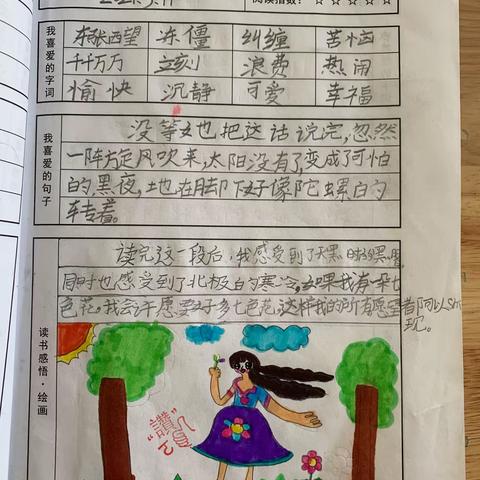 2021.3.11
阅读指数：☆☆☆☆☆
我喜爱的字词
东张西望 冻僵 纠缠 苦恼
千千万万 立刻 浪费 热闹
愉快 沉静 可爱 幸福
我喜爱的句子
没等她把这话说完，忽然
一阵旋风吹来，太阳没有了，变成了可怕
的黑夜，地在脚下好像陀螺的
转着。
读书感悟·绘画
读完这一段后，我感受到了天黑时的黑暗，
同时也感受到了北极的寒冷，如果我有一朵七
色花，我会许愿要好多七色花，这样我的所有愿望都可以实
现。
"讚"